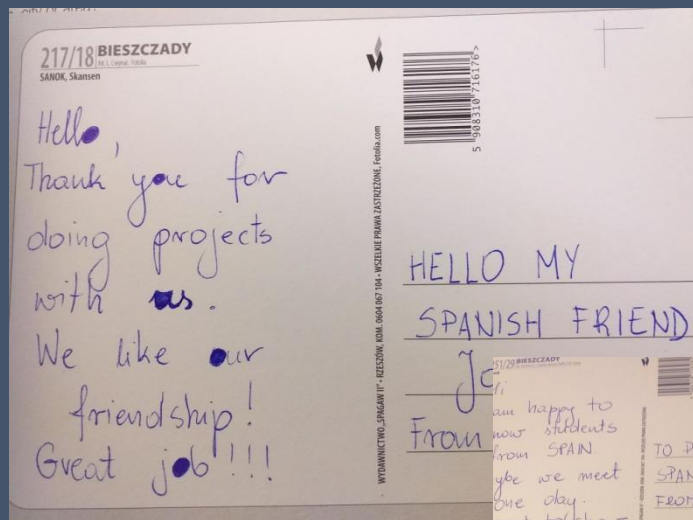 217/18 BIESZCZADY
SANOK, Skansen
Hello,
Thank you for
doing projects
with us.
We like our
friendship!
Great job!!!
WYDAWNICTWO „SPAGAW II" • RZESZÓW, KOM. 0604 067 104 • WSZELKIE PRAWA ZASTRZEŻONE, Fotolia.com
5 908310 716176 >
HELLO MY
SPANISH FRIEND
From
51/29 BIESZCZADY
am happy to
now students
from SPAIN.
ybe we meet
one day.
TO P
SPAN
FROM